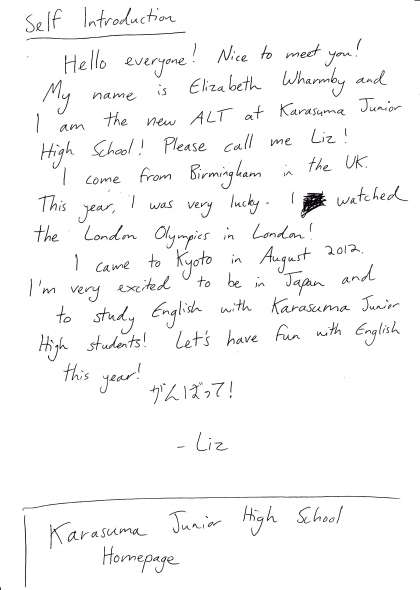 Self Introduction
Hello everyone! Nice to meet you!
My name is Elizabeth Wharmby and
I am the new ALT at Karasuma Junior
High School! Please call me Liz!
I come from Birmingham in the UK.
This year, I was very lucky. I watched
the London Olympics in London!
I came to Kyoto in August 2012.
I'm very excited to be in Japan and
to study English with Karasuma Junior
High students! Let's have fun with English
this year!
がんばって!
- Liz
Karasuma Junior High School
Homepage